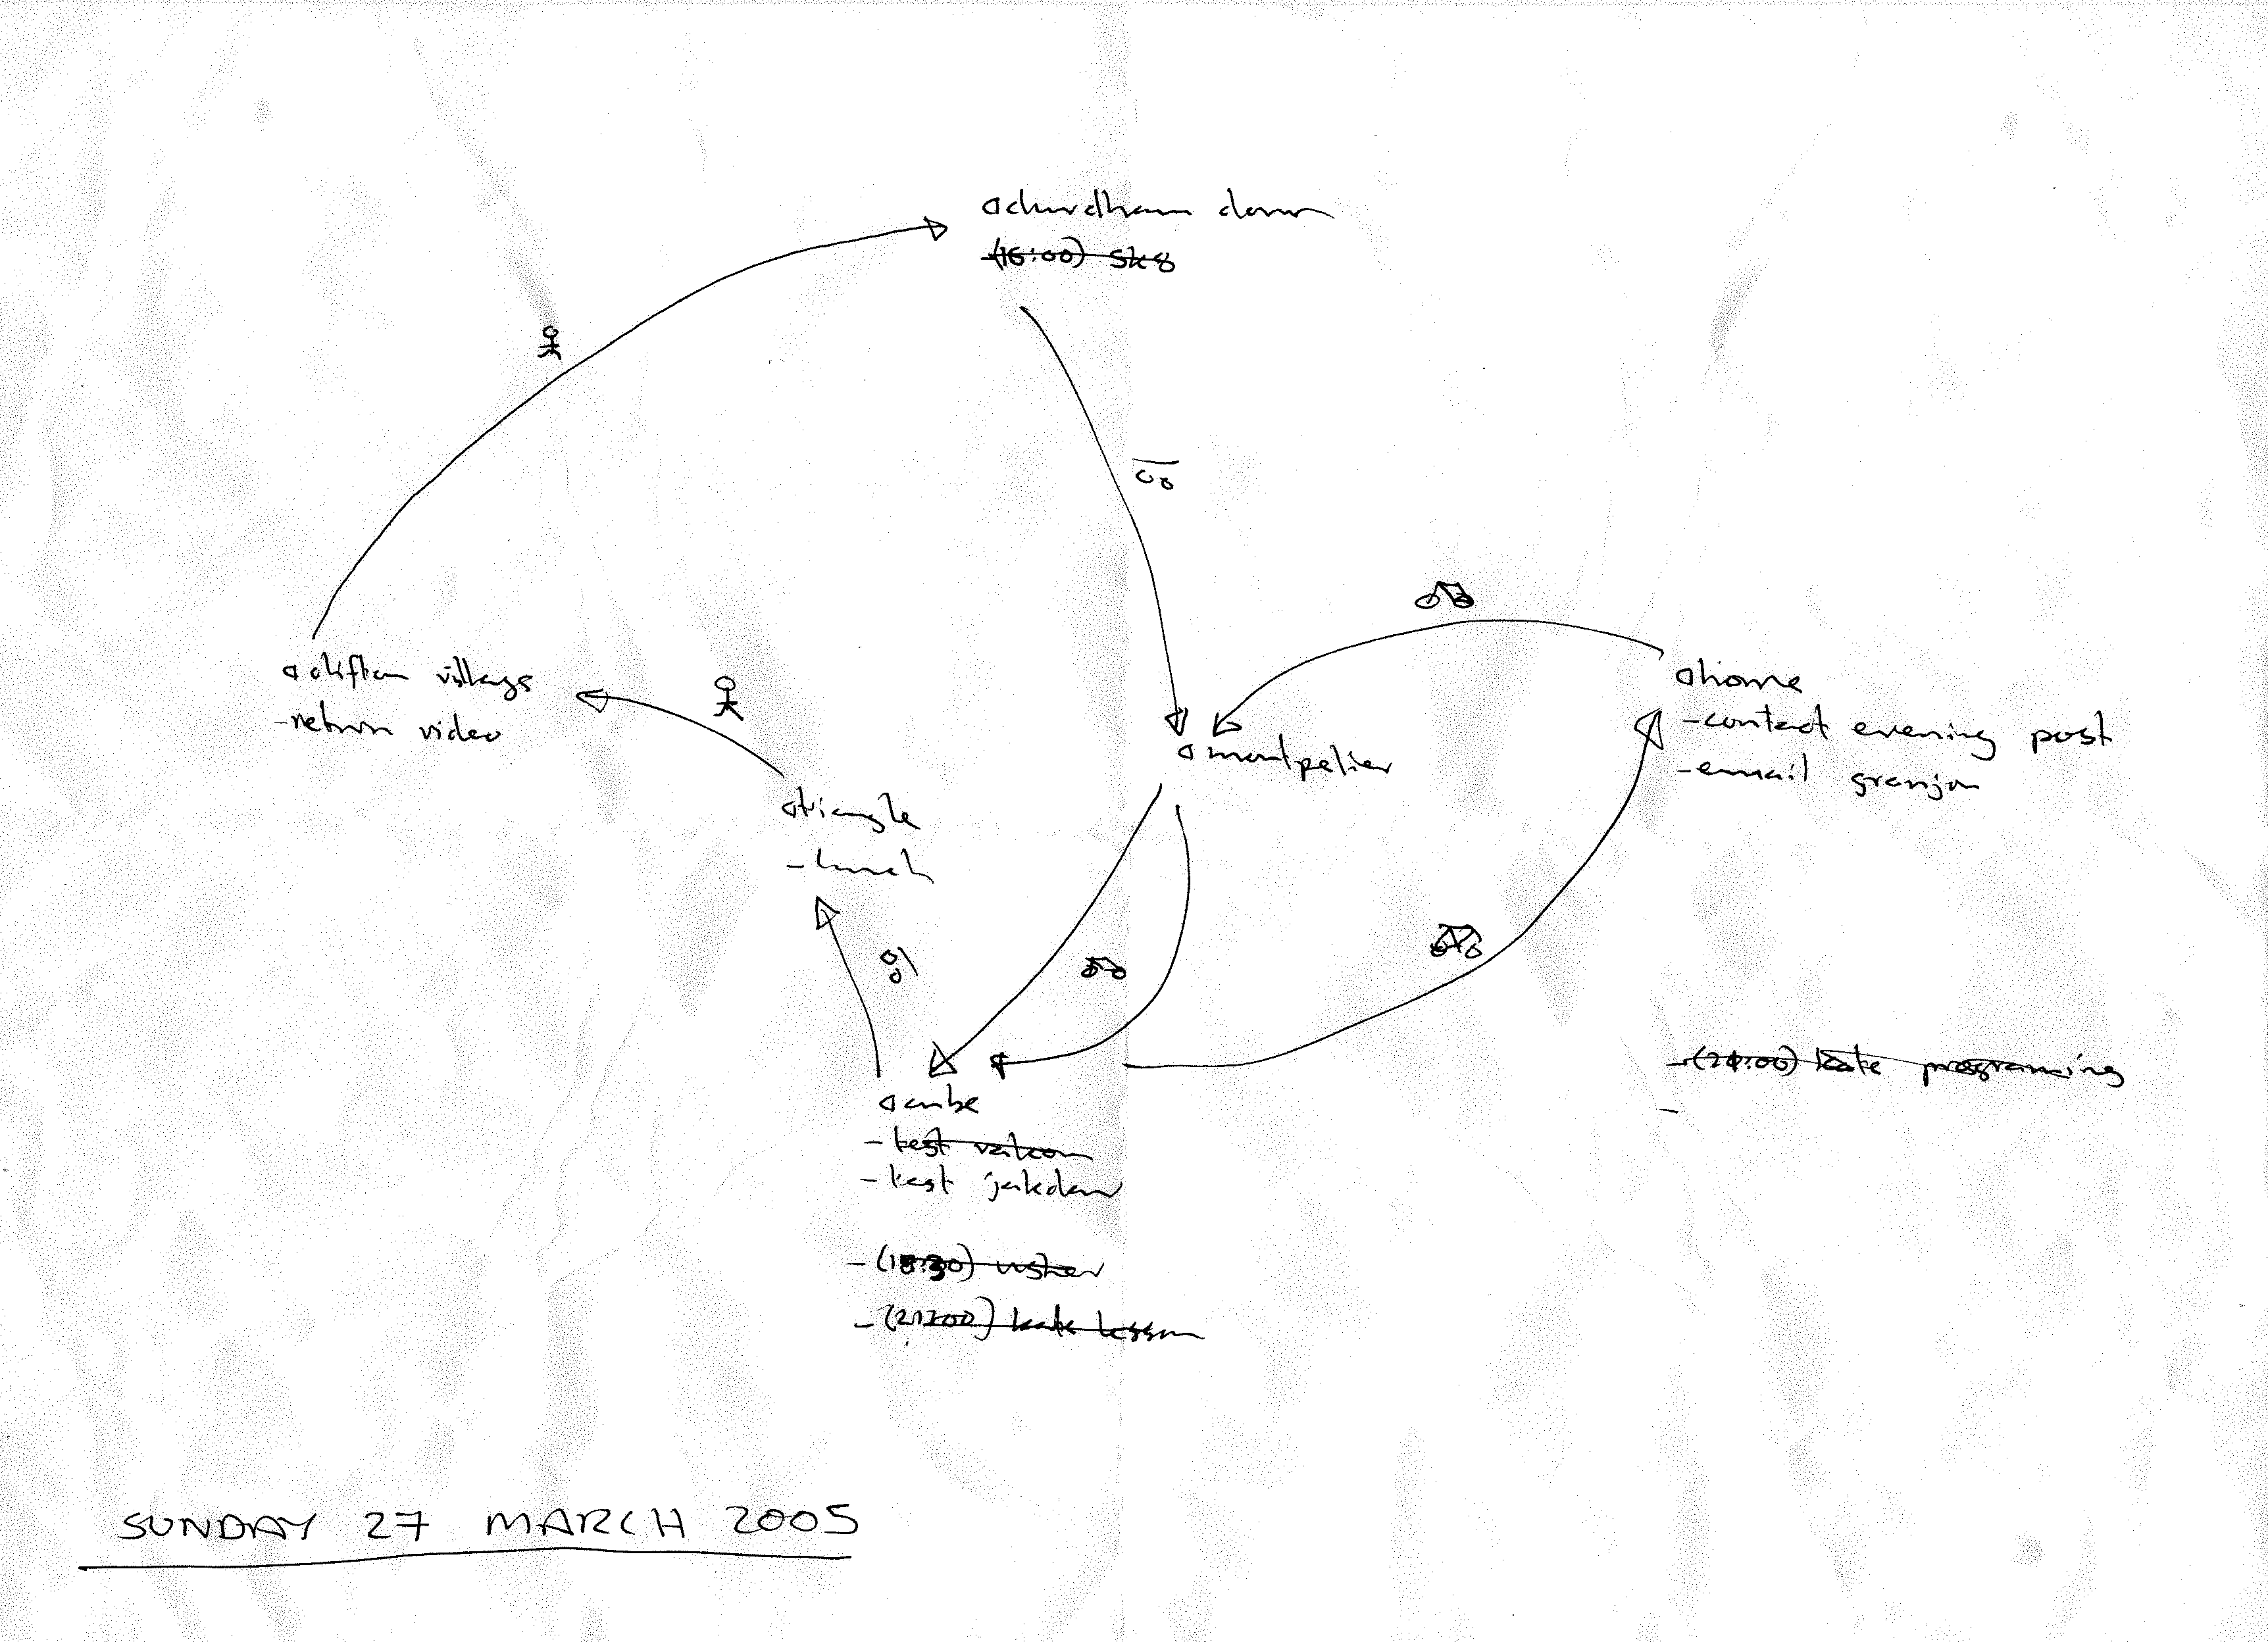 durdham down
(16:00) sk8
clifton village
-return video
home
-contact evening post
-email granjon
montpelier
triangle
-lunch
cube
-test
-test
-(18:30) usher
-(21:00) kate lesson
-(21:00) kate programing
-
SUNDAY 27 MARCH 2005